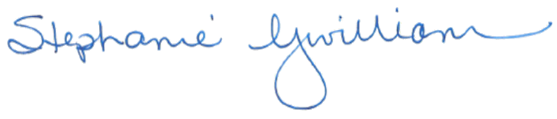 Stephanie Gwilliam